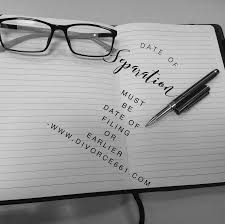 DATE OF
Separation
MUST
BE
DATE OF
FILING
OR
EARLIER
WWW.DIVORCE661.COM